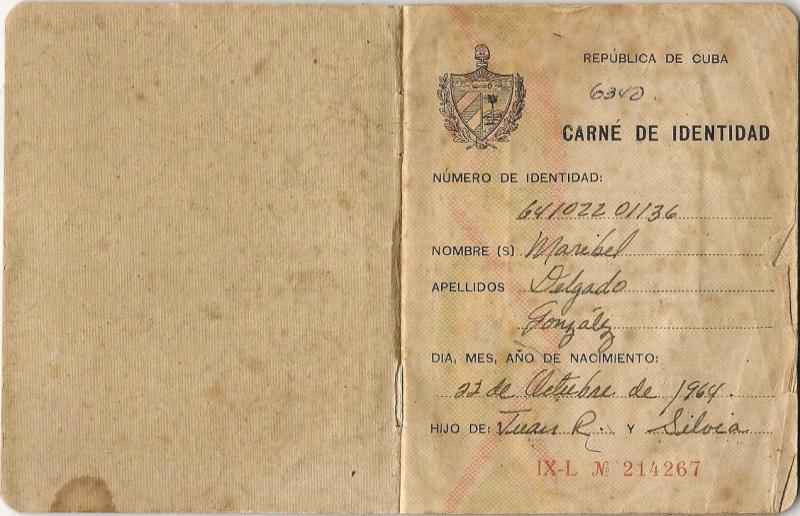 REPÚBLICA DE CUBA
6340
CARNÉ DE IDENTIDAD
NÚMERO DE IDENTIDAD:
64102201136
NOMBRE (S) Maribel
APELLIDOS Delgado
González
DIA, MES, AÑO DE NACIMIENTO:
22 de Octubre de 1964.
HIJO DE: Juan R. Y Silvia
IX-L № 214267